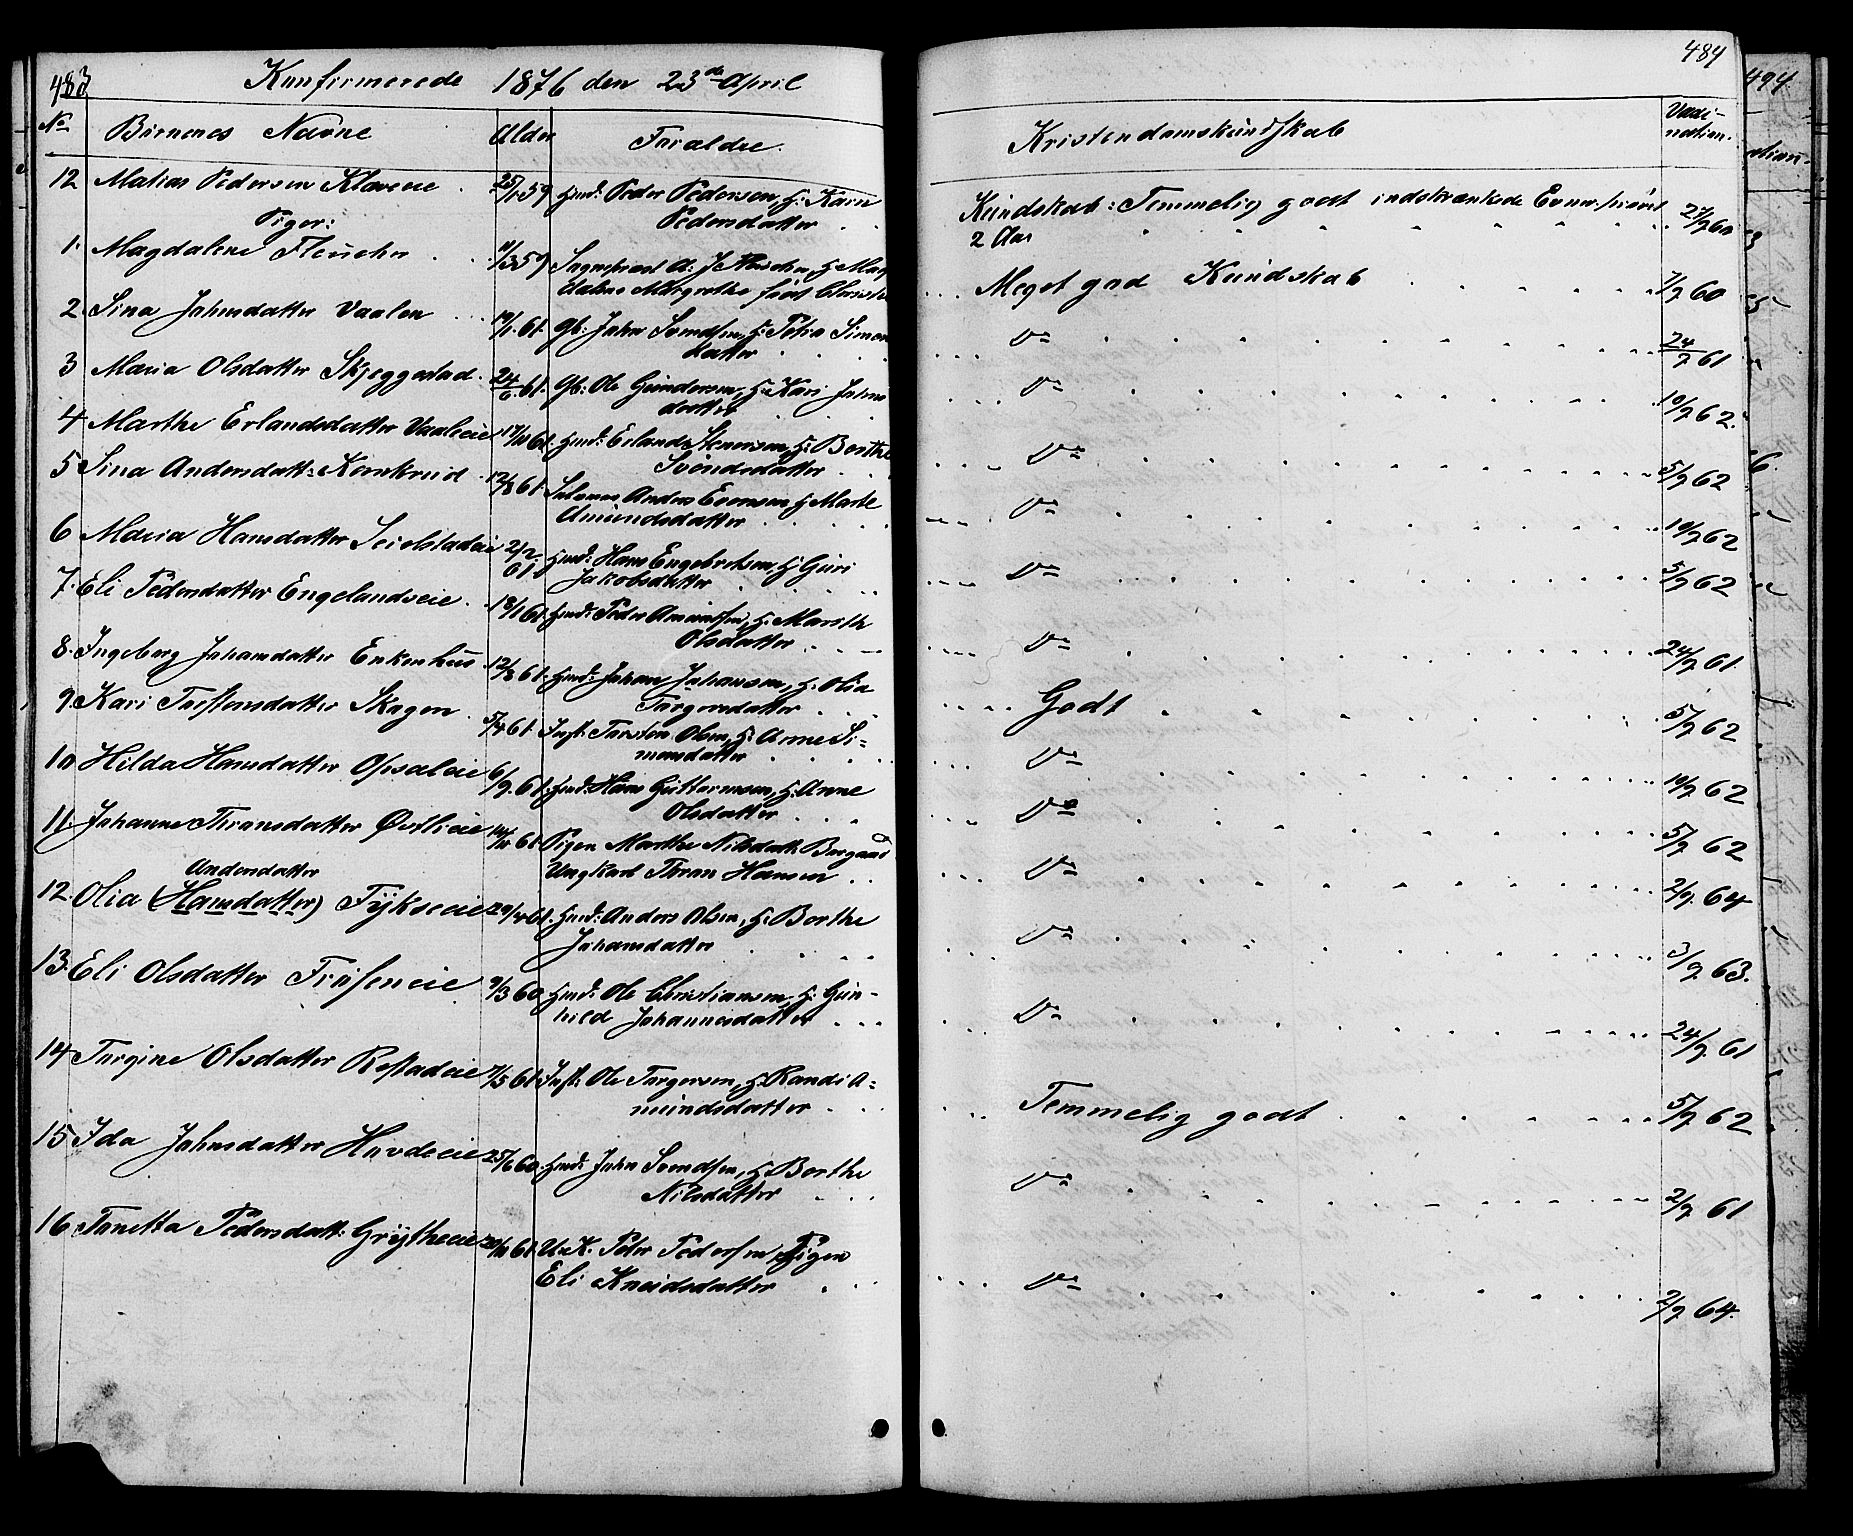 483
Konfirmerede 1876 den 23de April
No Børnenes Navne Alder Forældre.
12 Matias Pedersen Klæveeie 25/1 59 Hmd: Peder Pedersen, H: Karn
Pedersdatter
Piger:
1. Magdalene Fleischer 11/3 59 Sognepræst A: J Fleischer, H Mag
dalene Margrethe født
2 Sina Johnsdatter Vaalen 19/1. 61. Gb: John Svendsen, H: Petra Simons
datter
3 Maria Olsdatter Skjeggestad 24/6. 61. Gb: Ole Gundersen, H: Kari Johns
datter
4 Marthe Erlandsdatter Vaaleeie 17/10 61. Hmd: Erland Stenersen, H: Berthe
Svendsdatter
5 Sina Andersdatt: Kornkrud 12/8 61. Anders Evensen, H Marte
Amundsdatter
6 Maria Hansdatter Seielstadeie 2/2. 61. Hmd: Hans Engebretsen, H Guri
Jakobsdatter
7. Eli Pedersdatter Engelandseie 18/1 61. Hmd: Peder Amundsen, H: Marith
Olsdatter
8. Ingeborg Johansdatter Enkenhus 12/8 61. Hmd: Johan Johansen, H. Olia
Torgersdatter
9. Kari Torstensdatter Skogen 5/4 61. Inst: Torsten Olsen, H: Anne Si-
monsdatter
10 Hilda Hansdatter Opsaleie 6/9. 61. Hmd: Hans Guttormsen, H: Anne
Olsdatter
11. Johanne Thronsdatter Østlieeie 14/10 61 Pigen Marthe Nilsdatt.
Ungkarl Thron Hansen
Andersdatter
12 Olia (Hansdatter) Fykseeie 29/4 61. Hmd: Anders Olsen, H: Berthe
Johansdatter
13. Eli Olsdatter Frøseneie 9/3 60 Hmd: Ole Christiansen, H: Gun-
hild Johannesdatter
14 Torgine Olsdatter Refstadeie 7/5 61 Inst: Ole Torgersen, H. Randi A-
mundsdatter
15 Ida Johnsdatter Hovdeeie 25/6 60. Hmd: John Svendsen, H Berthe
Nilsdatter
16 Tonetta Pedersdatt: Grytheeie /10 61. U.K. Peter Pedersen Pigen
Eli Knudsdatter
484
Kristendomskundskab Vacci-
nation.
Kundskab: Temmelig godt indskrænkede Evner. prøvet
2 Aar 27/9 60
Meget god Kundskab 7/9 60
Do 24/9 61
Do 10/9 62.
Do 5/9 62
Do 10/9 62
Do 5/9 62
Do 24/9 61.
Godt 5/9 62
Do 10/9 62
Do 5/9 62
Do 2/9. 64
Do 3/9 63.
Do 24/9 61
Temmelig godt 5/9 62
Do 2/9 61
Do 2/9 64.
494.